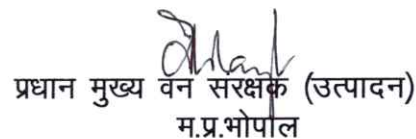 प्रधान मुख्य वन संरक्षक (उत्पादन)
म.प्र.भोपाल